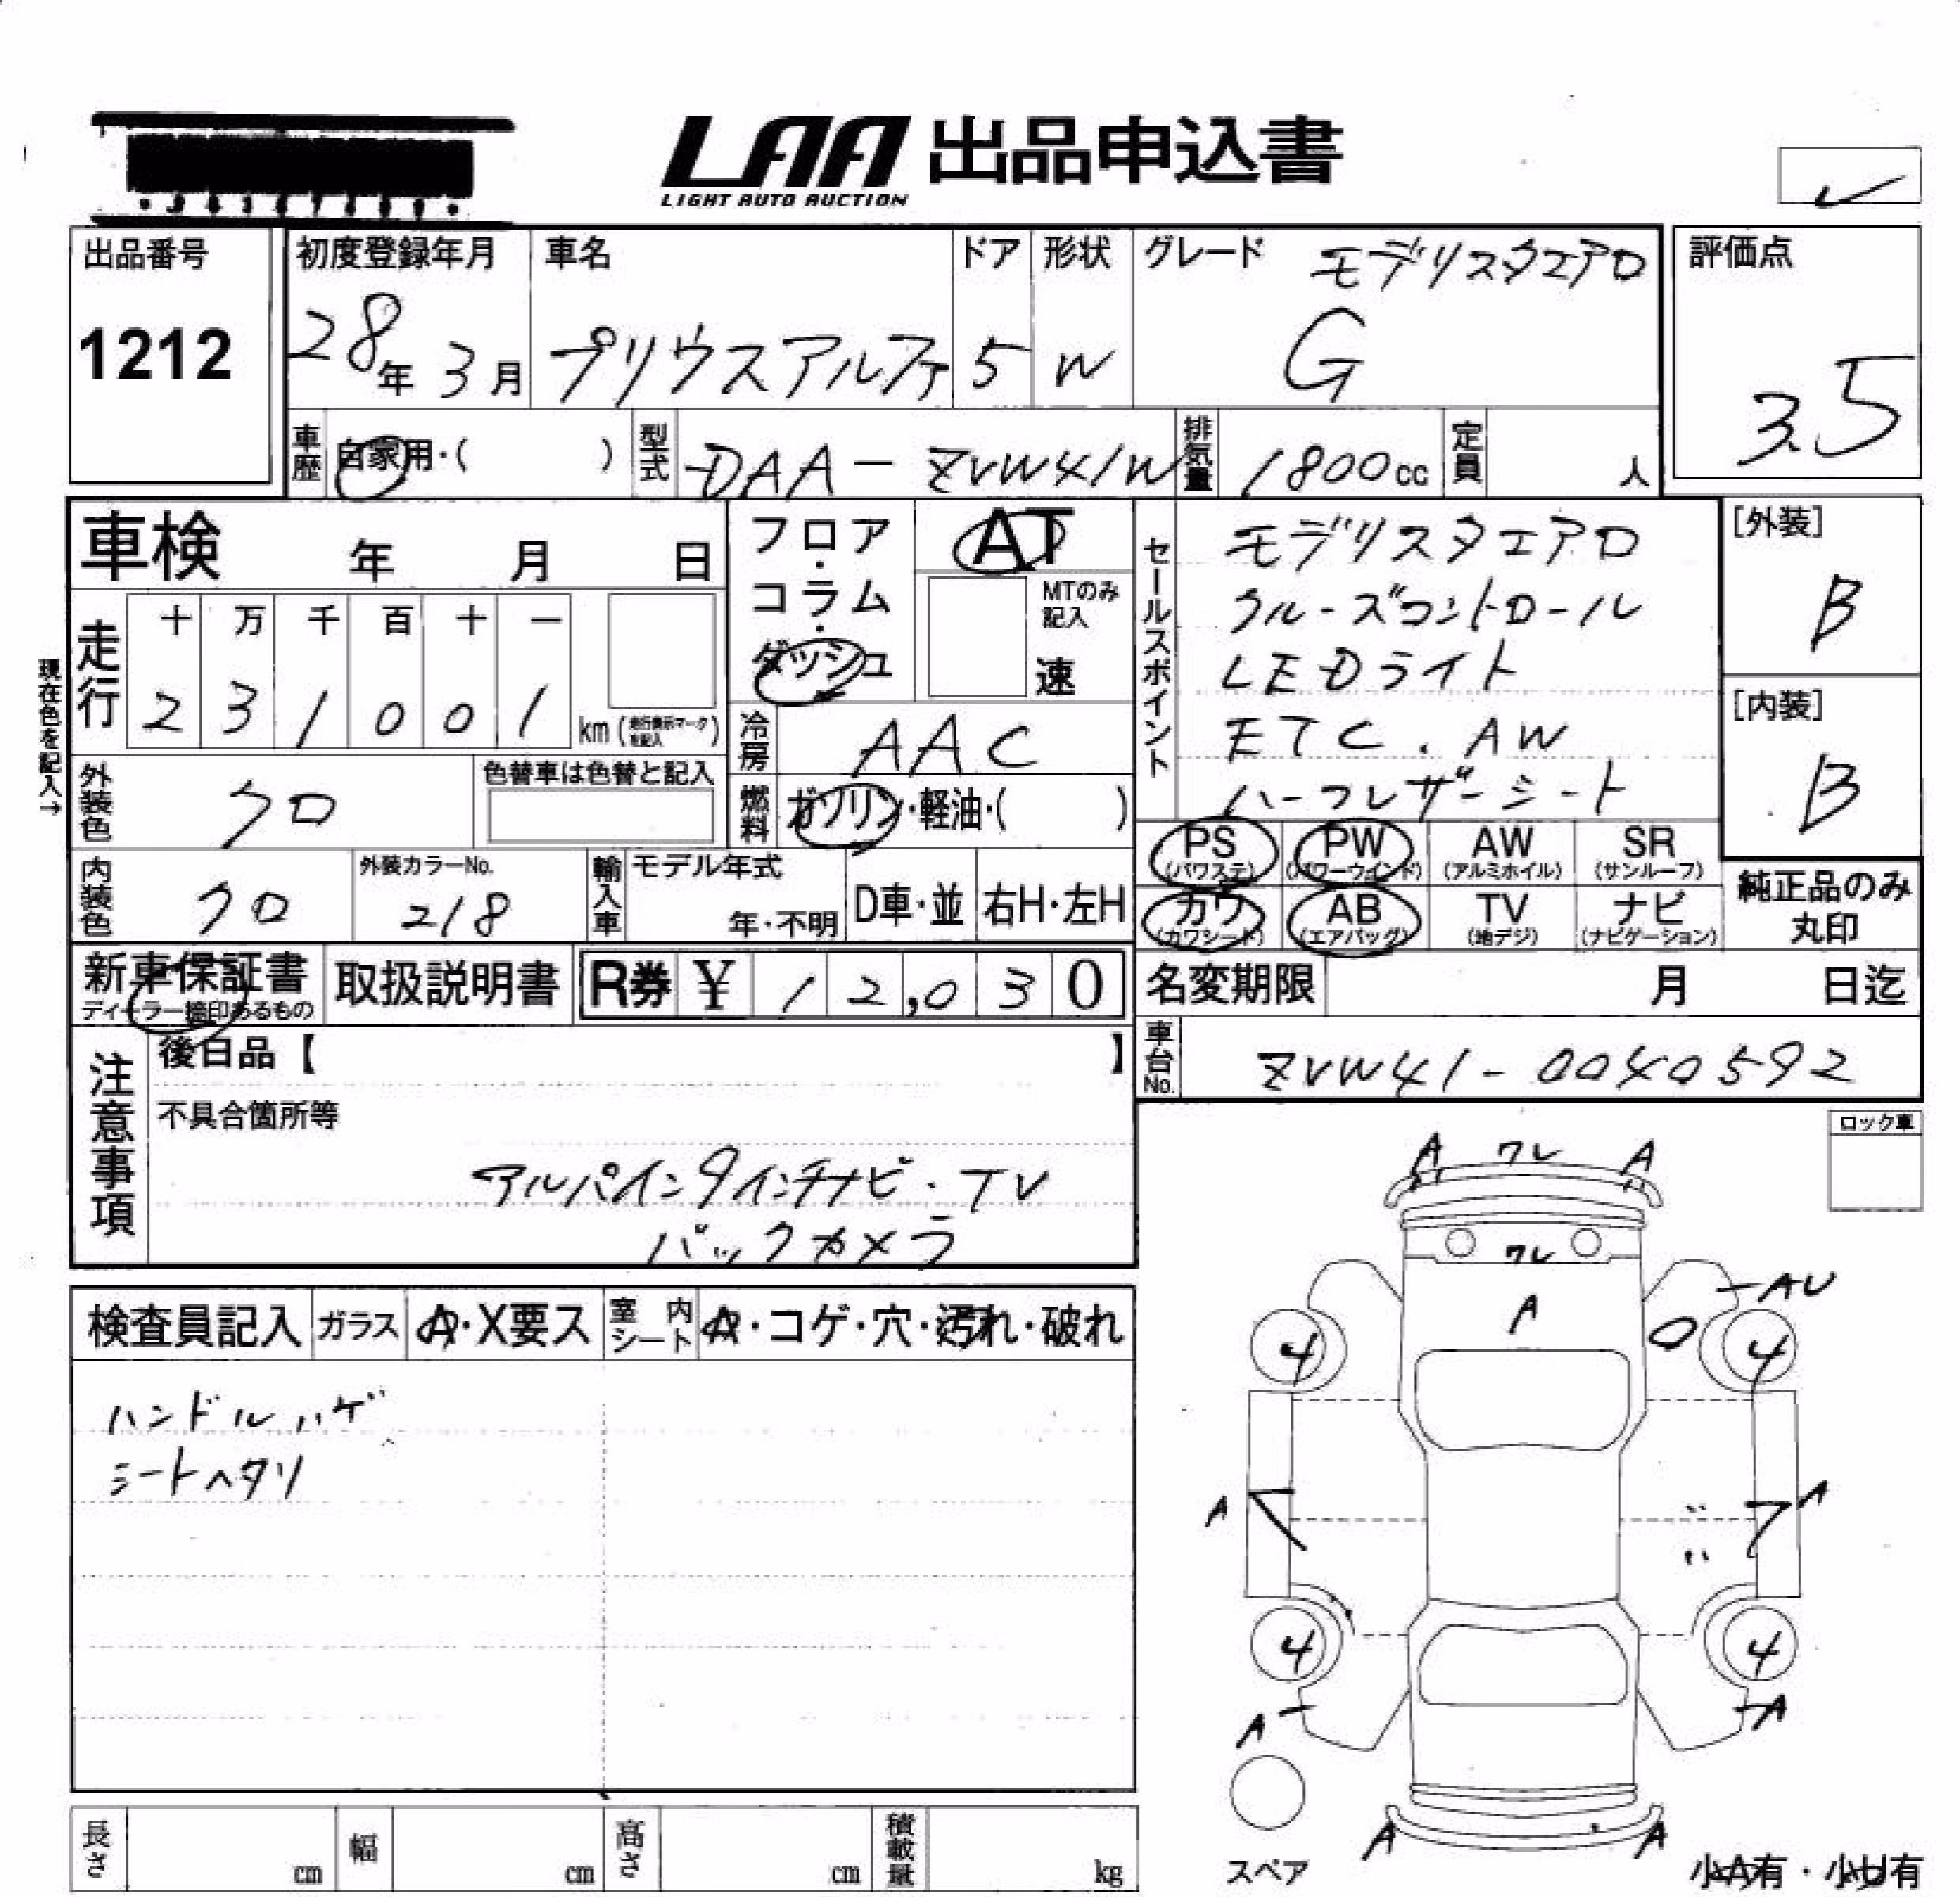 LAA 出品申込書
LIGHT AUTO AUCTION
出品番号
1212
初度登録年月
28年 3月
車名
プリウスアルファ
ドア
5
形状
W
グレード
モデリスタエアロ
G
評価点
3.5
車歴 自家用・( )
型式 DAA-ZVW41W
排気量 1800cc
定員 人
車検 年 月 日
フロア・コラム・ダッシュ
AT
MTのみ記入
速
現在色を記入→
走行
十 万 千 百 十 一
2 3 1 0 0 1 km (走行表示マークを記入)
冷房 AAC
外装色 クロ
色替車は色替と記入
燃料 ガソリン・軽油・( )
セールスポイント
モデリスタエアロ
クルーズコントロール
LEDライト
ETC.AW
ハーフレザーシート
[外装]
B
[内装]
B
内装色 クロ
外装カラーNo.
218
輸入車 モデル年式
年・不明
D車・並 右H・左H
PS (パワステ) PW (パワーウインド) AW (アルミホイル) SR (サンルーフ)
カワ (カワシート) AB (エアバッグ) TV (地デジ) ナビ (ナビゲーション)
純正品のみ
丸印
新車保証書
ディーラー捺印あるもの
取扱説明書
R券 ¥ 1 2,0 3 0
名変期限 月 日迄
車台No. ZVW41-0040592
注意事項
後日品【 】
不具合箇所等
アルパイン9インチナビ・TV
バックカメラ
ロック車
検査員記入 ガラス A・X要ス 室内シート A・コゲ・穴・汚れ・破れ
ハンドルハゲ
シートヘタリ
A ワレ A
ワレ
A
AU
4 4
A A
4 4
A A
A A
スペア
小A有・小U有
長さ cm 幅 cm 高さ cm 積載量 kg